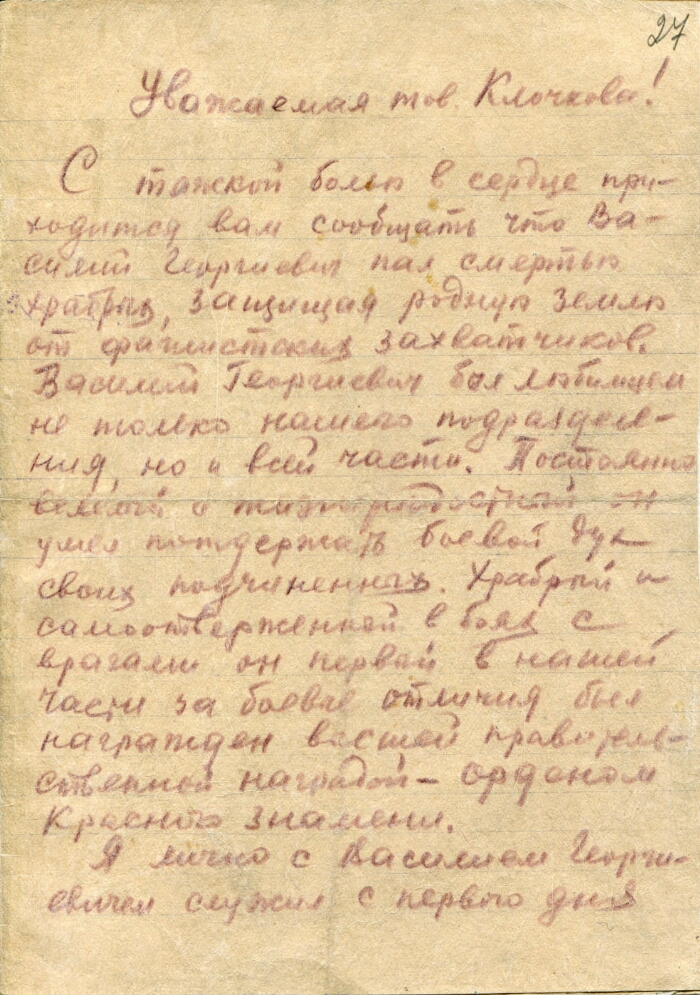 27
Уважаемая тов. Клочкова!
С тяжкой болью в сердце при-
ходится вам сообщать что Ва-
силий Георгиевич пал смертью
храбрых, защищая родную землю
от фашистских захватчиков.
Василий Георгиевич был любимцем
не только нашего подразделе-
ния, но и всей части. Постоянно
веселый и жизнерадостный он
умел поддержать боевой дух
своих подчиненных. Храбрый и
самоотверженной в боях с
врагами он первой в нашей
части за боевые отличия был
награжден высшей правитель-
ственной наградой – орденом
Красного Знамени.
Я лично с Василием Георги-
евичем служил с первого дня